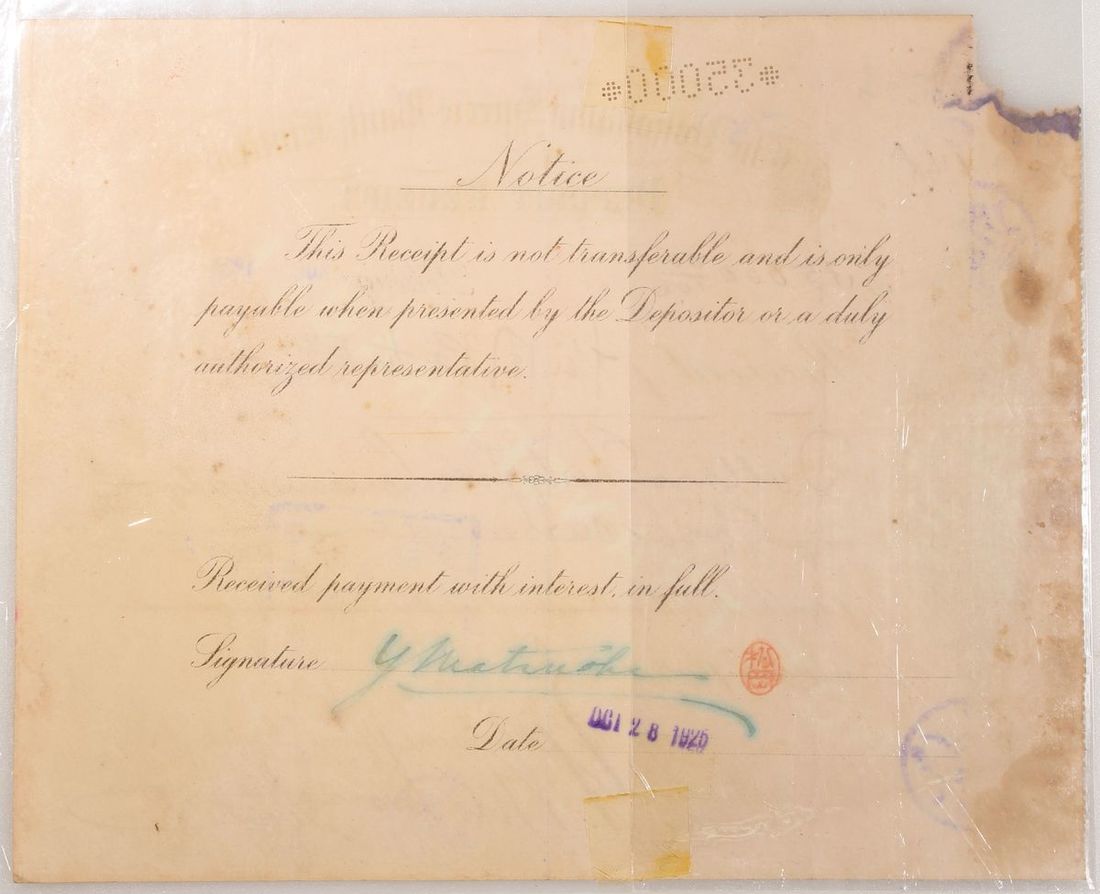 *00035*
Notice
This Receipt is not transferable and is only
payable when presented by the Depositor or a duly
authorized representative.
Received payment with interest, in full.
Signature
Date OCT 28 1925